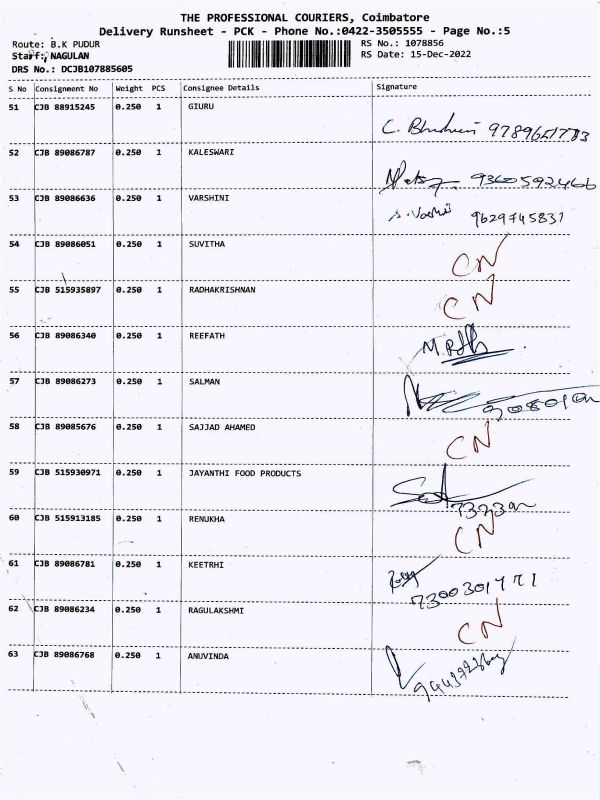 THE PROFESSIONAL COURIERS, Coimbatore
Delivery Runsheet - PCK - Phone No.:0422-3505555 - Page No.:5
Route: B.K PUDUR
RS No.: 1078856
Staff: NAGULAN
RS Date: 15-Dec-2022
DRS No.: DCJB107885605
S No Consignment No Weight PCS Consignee Details Signature
51 CJB 88915245 0.250 1 GIURU
C.
52 CJB 89086787 0.250 1 KALESWARI
9360592466
53 CJB 89086636 0.250 1 VARSHINI
9629745831
54 CJB 89086051 0.250 1 SUVITHA
CN
55 CJB 515935897 0.250 1 RADHAKRISHNAN
CN
56 CJB 89086340 0.250 1 REEFATH
57 CJB 89086273 0.250 1 SALMAN
58 CJB 89085676 0.250 1 SAJJAD AHAMED
CN
59 CJB 515930971 0.250 1 JAYANTHI FOOD PRODUCTS
60 CJB 515913185 0.250 1 RENUKHA
CN
61 CJB 89086781 0.250 1 KEETRHI
62 CJB 89086234 0.250 1 RAGULAKSHMI
CN
63 CJB 89086768 0.250 1 ANUVINDA